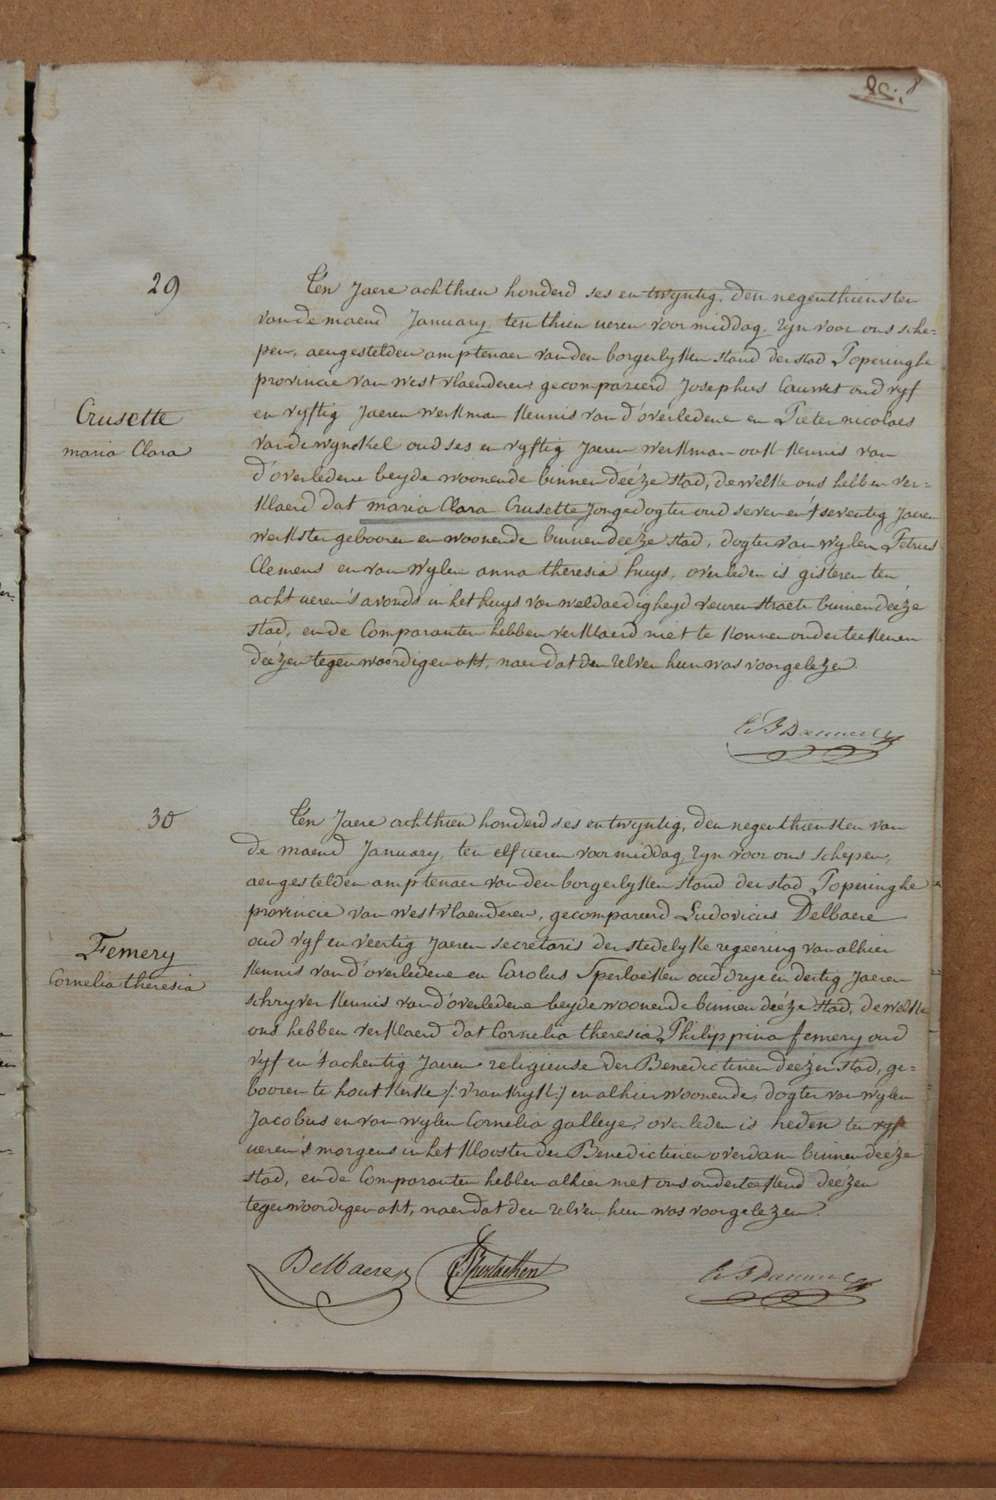 8
29
Crusette
maria Clara
Ten Jaere achthien honderd ses en twyntig, den negenthiensten
van de maend January, ten thien ueren voormiddag, zyn voor ons sche=
pen, aengestelden amptenaer van den borgerlyken stand der stad Poperinghe
provincie van westvlaenderen, gecompareerd Josephus Cauwet oud vyf
en vyftig Jaeren werkman kennis van d'overledene en Pieter nicolaes
Vandewynckel oud ses en vyftig Jaeren werkman ook kennis van
d'overledene beyde woonende binnen deéze stad, dewelke ons hebben ver=
klaerd dat maria Clara Crusette Jongedogter oud seven en 't seventig Jaeren
werkster gebooren en woonende binnen deéze stad, dogter van wylen Petrus
Clemens en van wylen anna theresia huys, overleden is gisteren ten
acht ueren 's avonds in het huys van weldaedigheyd veurenstraete binnen deéze
stad, en de Comparanten hebben verklaerd niet te konnen onderteekenen
deézen tegenwoordigen akt, naer dat den zelven hun was voorgelezen
30
Femery
Cornelia theresia
Ten Jaere achthien honderd ses en twyntig, den negenthiensten van
de maend January, ten elf ueren voormiddag, zyn voor ons schepen,
aengestelden amptenaer van den borgerlyken stand der stad Poperinghe
provincie van westvlaenderen, gecompareerd Ludovicus Delbaere
oud vyf en veertig Jaeren secretaris der stedelyke regeering van alhier
kennis van d'overledene en Carolus Sperlaeken oud drye en dertig Jaeren
schryver kennis van d'overledene beyde woonende binnen deéze stad, dewelke
ons hebben verklaerd dat Cornelia theresia Philippina femery oud
vyf en 't achentig Jaeren religieuse der Benedictinen deézer stad, ge=
booren te houtkerke /: vrankryk :/ en alhier woonende, dogter van wylen
Jacobus en van wylen Cornelia galleye, overleden is heden ten vyf
ueren 's morgens in het klooster der Benedictinen overdam binnen deéze
stad, en de Comparanten hebben alhier met ons onderteekend deézen
tegenwoordigen akt, naer dat den zelven hun was voorgelezen.
Delbaere
Sperlaeken